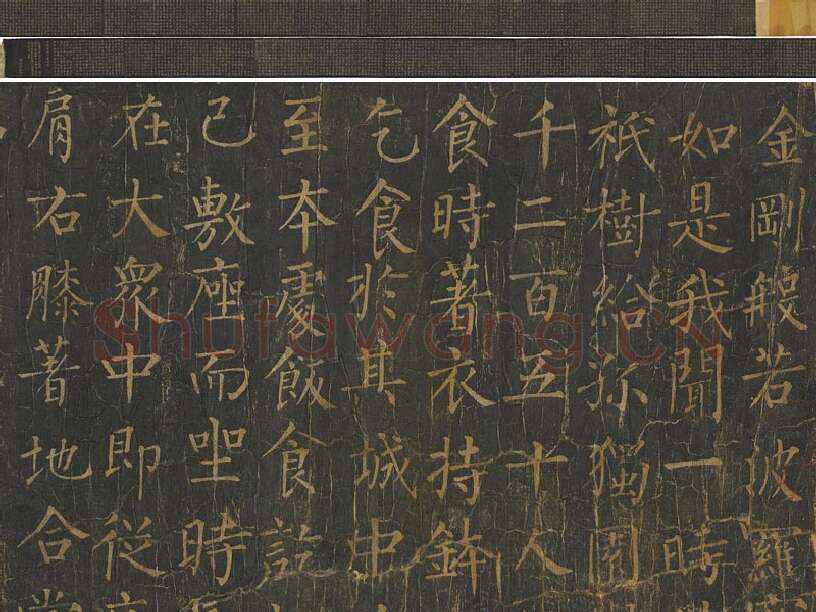 金剛般若波羅
如是我聞一時
祇樹給孤獨園
千二百五十人
食時著衣持鉢
乞食於其城中
至本處飯食訖
已敷座而坐時
在大衆中即從
肩右膝著地合
Shufawang.CN